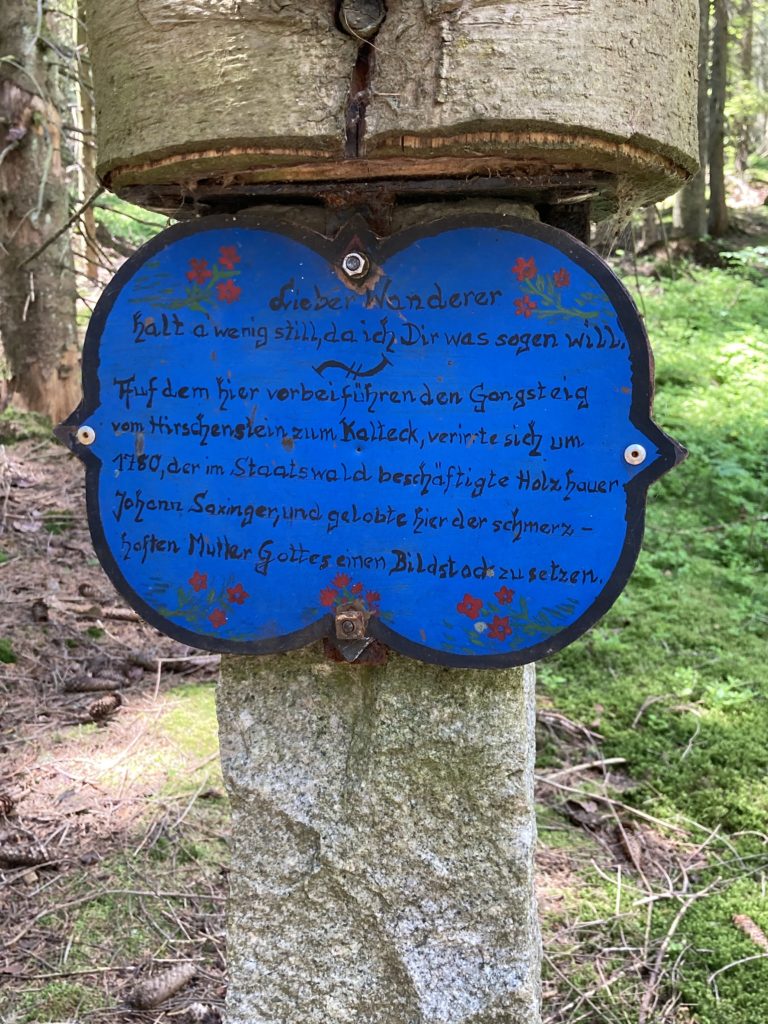 Lieber Wanderer
halt a wenig still, da ich Dir was sogen will.
Auf dem hier vorbeiführenden Gongsteig
vom Hirschenstein zum Kalteck, verirrte sich um
1780, der im Staatswald beschäftigte Holzhauer
Johann Saxinger, und gelobte hier der schmerz-
haften Mutter Gottes einen Bildstock zu setzen.